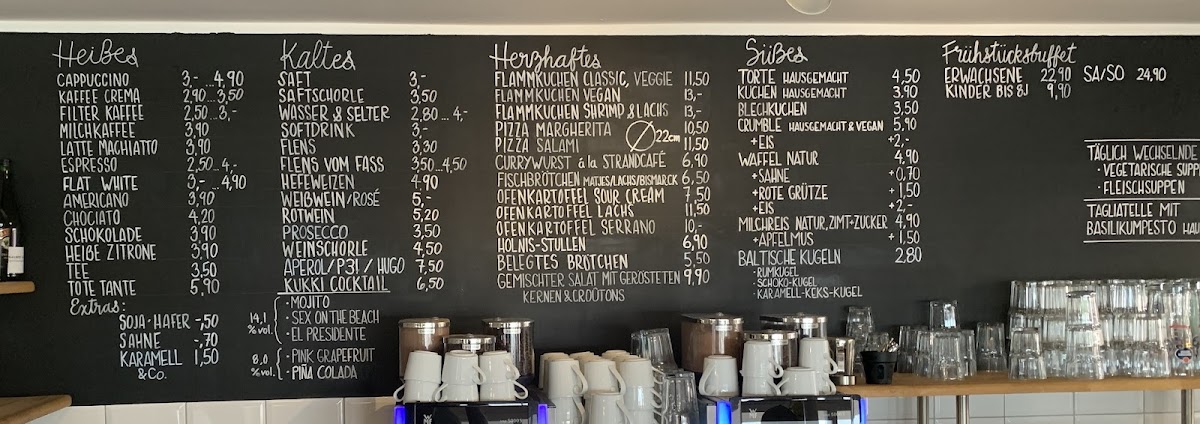 Heißes
CAPPUCCINO 3,-...4,90
KAFFEE CREMA 2,90...3,50
FILTER KAFFEE 2,50...3,-
MILCHKAFFEE 3,90
LATTE MACHIATTO 3,90
ESPRESSO 2,50...4,-
FLAT WHITE 3,-...4,90
AMERICANO 3,90
CHOCIATO 4,20
SCHOKOLADE 3,90
HEIßE ZITRONE 3,90
TEE 3,50
TOTE TANTE 5,90
Extras:
SOJA-HAFER -,50
SAHNE -,70
KARAMELL 1,50
&Co.
Kaltes
SAFT 3,-
SAFTSCHORLE 3,50
WASSER & SELTER 2,80...4,-
SOFTDRINK 3,-
FLENS 3,30
FLENS VOM FASS 3,50...4,50
HEFEWEIZEN 4,90
WEIßWEIN/ROSÉ 5,-
ROTWEIN 5,20
PROSECCO 3,50
WEINSCHORLE 4,50
APEROL/P31/HUGO 7,50
KUKKI COCKTAIL 6,50
14,1 %vol.
· MOJITO
· SEX ON THE BEACH
· EL PRESIDENTE
8,0 %vol.
· PINK GRAPEFRUIT
· PIÑA COLADA
Herzhaftes
FLAMMKUCHEN CLASSIC, VEGGIE 11,50
FLAMMKUCHEN VEGAN 13,-
FLAMMKUCHEN SHRIMP & LACHS 13,-
PIZZA MARGHERITA 10,50
PIZZA SALAMI Ø22cm 11,50
CURRYWURST á la STRANDCAFÉ 6,90
FISCHBRÖTCHEN MATJES/LACHS/BISMARCK 6,50
OFENKARTOFFEL SOUR CREAM 7,50
OFENKARTOFFEL LACHS 11,50
OFENKARTOFFEL SERRANO 10,-
HOLNIS-STULLEN 6,90
BELEGTES BRÖTCHEN 5,50
GEMISCHTER SALAT MIT GERÖSTETEN 9,90
KERNEN & CROÛTONS
Süßes
TORTE HAUSGEMACHT 4,50
KUCHEN HAUSGEMACHT 3,90
BLECHKUCHEN 3,50
CRUMBLE HAUSGEMACHT & VEGAN 5,90
+EIS +2,-
WAFFEL NATUR 4,90
+SAHNE +0,70
+ROTE GRÜTZE +1,50
+EIS +2,-
MILCHREIS NATUR, ZIMT+ZUCKER 4,90
+APFELMUS +1,50
BALTISCHE KUGELN 2,80
· RUMKUGEL
· SCHOKO-KUGEL
· KARAMELL-KEKS-KUGEL
Frühstücksbuffet
ERWACHSENE 22,90 SA/SO 24,90
KINDER BIS 8J 9,90
TÄGLICH WECHSELNDE
· VEGETARISCHE SUPP
· FLEISCHSUPPEN
TAGLIATELLE MIT
BASILIKUMPESTO HAU
WMF
WMF